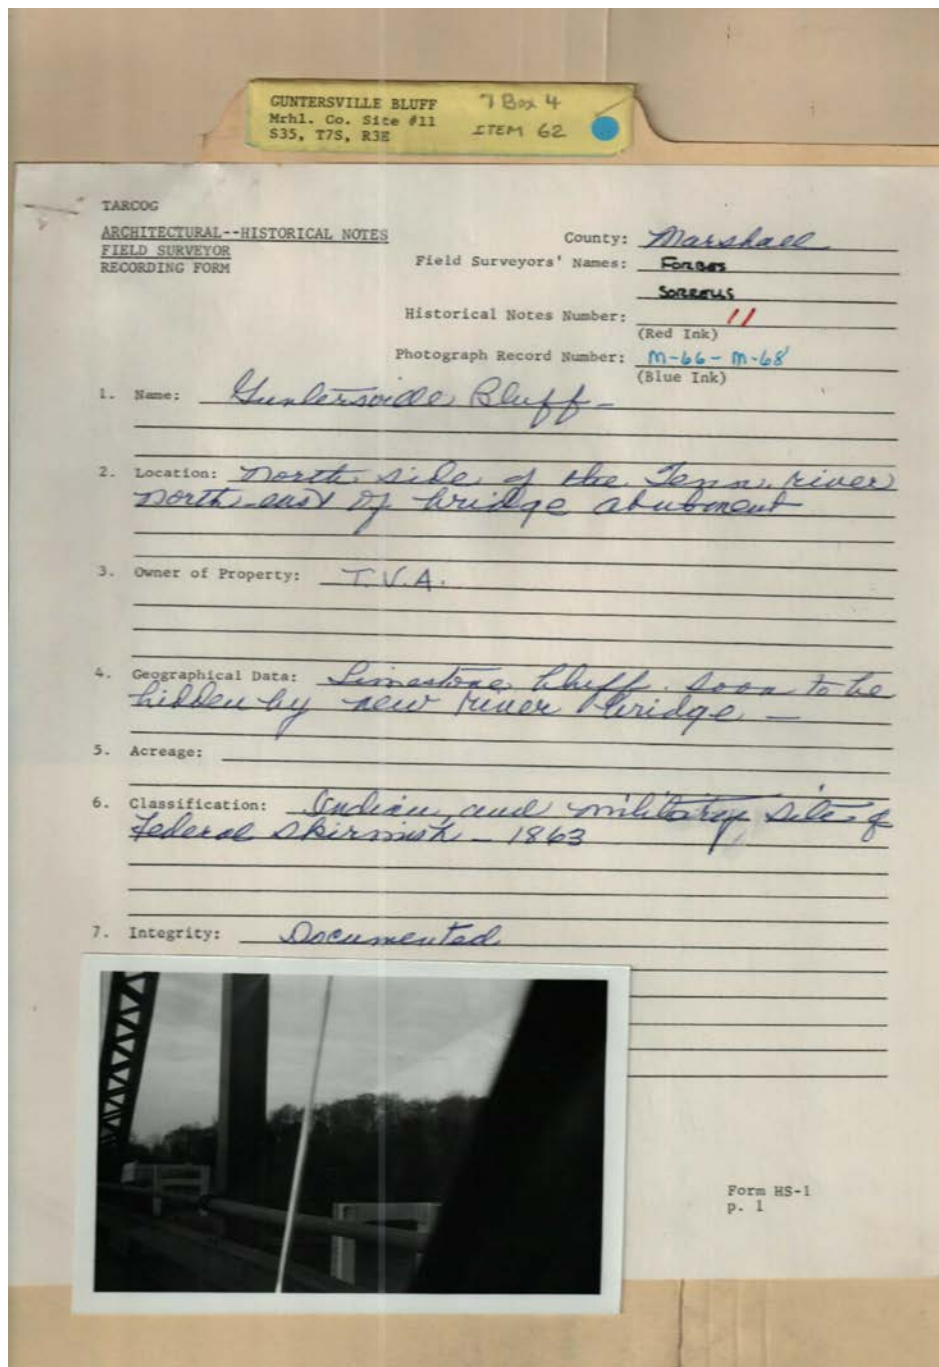 GUNTERSVILLE BLUFF 7 Box 4
Mrhl. Co. Site #11 ITEM 62
S35, T7S, R3E
TARCOG
ARCHITECTURAL--HISTORICAL NOTES
FIELD SURVEYOR
RECORDING FORM
County: Marshall
Field Surveyors' Names: Forbes
Sorrells
Historical Notes Number: 11
(Red Ink)
Photograph Record Number: M-66- M-68
(Blue Ink)
1. Name: Guntersville Bluff -
2. Location: North side of the Tenn. river
north-east of bridge abutment
3. Owner of Property: T.V.A.
4. Geographical Data: Limestone bluff. soon to be
hidden by new river bridge -
5. Acreage:
6. Classification: Indian and military site of
Federal skirmish - 1863
7. Integrity: Documented
Form HS-1
p. 1